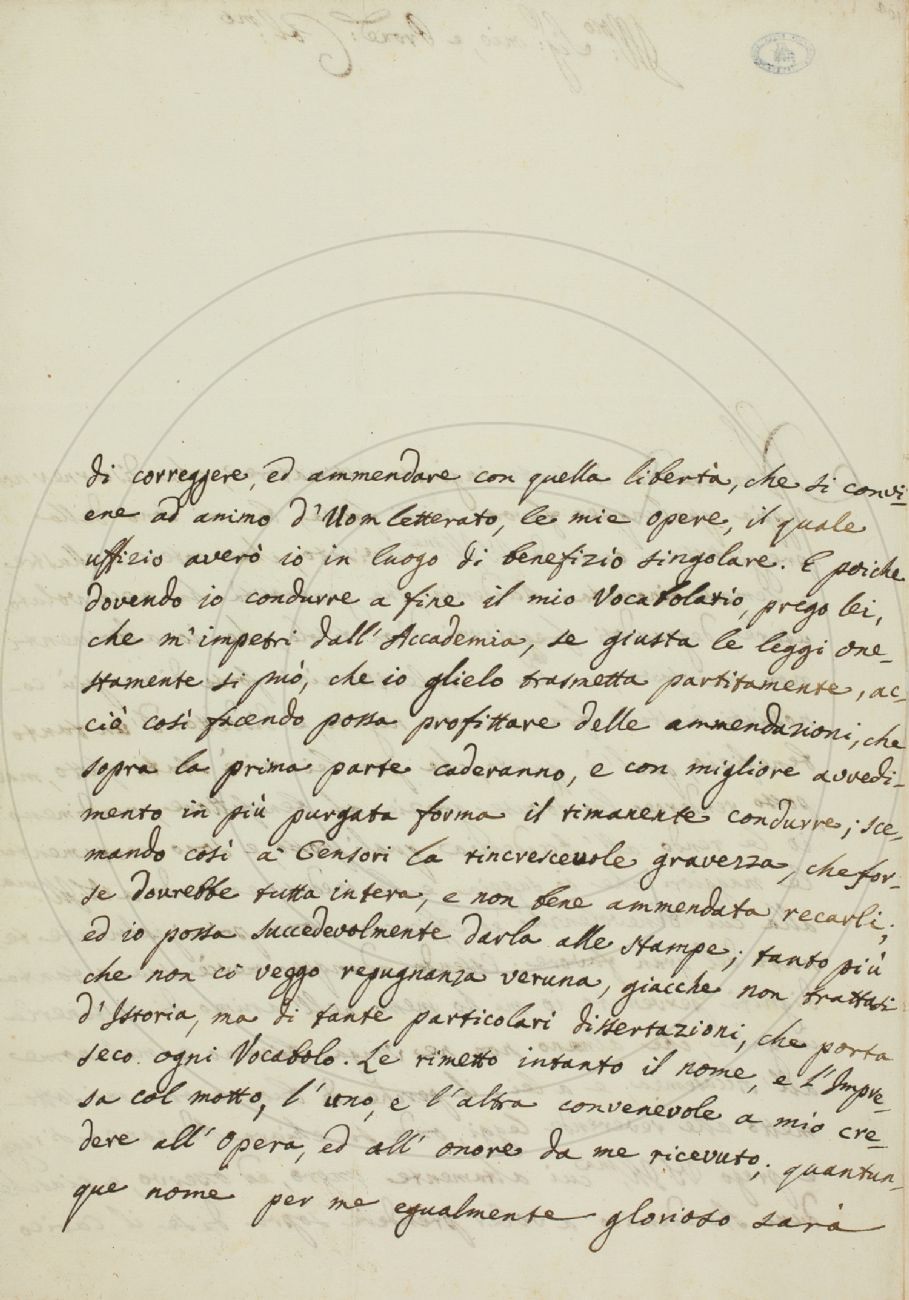 di correggere, ed ammendare con quella libertà, che si convi-
ene ad animo d'Uom letterato, le mie opere, il quale
uffizio averò io in luogo di benefizio singolare. E poiche
dovendo io condurre a fine il mio Vocabolario, prego lei,
che m'impetri dall'Accademia, se giusta le leggi one-
stamente si può, che io glielo trasmetta partitamente, ac-
ciò così facendo possa profittare delle ammendazioni, che
sopra la prima parte caderanno, e con migliore avvedi-
mento in più purgata forma il rimanente condurre; sce-
mando così a' Censori la rincrescevole gravezza, che for-
se dovrebbe tutta intera, e non bene ammendata recarli;
ed io possa succedevolmente darla alle stampe; tanto più
che non ci veggo repugnanza veruna, giacche non trattasi
d'Istoria, ma di tante particolari dissertazioni, che porta
seco ogni Vocabolo. Le rimetto intanto il nome, e l'Impre-
sa col motto, l'uno, e l'altra convenevole a mio cre-
dere all'Opera, ed all'onore da me ricevuto; quantun-
que nome per me egualmente glorioso sarà